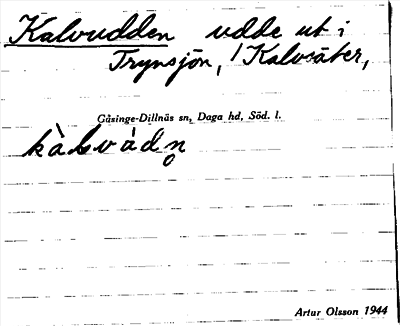 Kalvudden udde ut i
Trynsjön, / Kalvsäter,
Gåsinge-Dillnäs sn, Daga hd, Söd. l.
kàlvùdn̥
Artur Olsson 1944